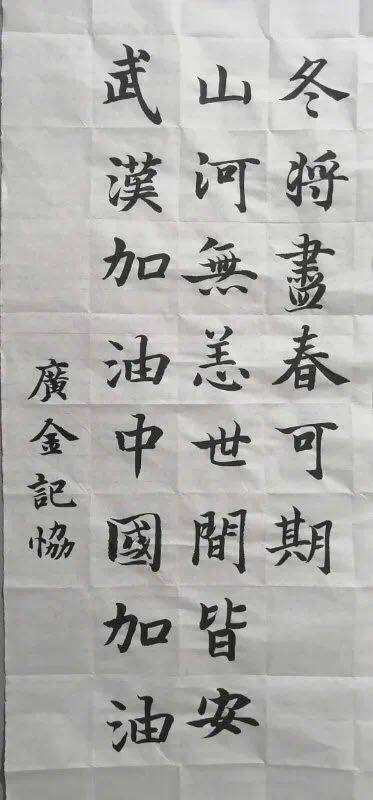 冬将盡春可期
山河無恙世間皆安
武漢加油中國加油
廣金記協